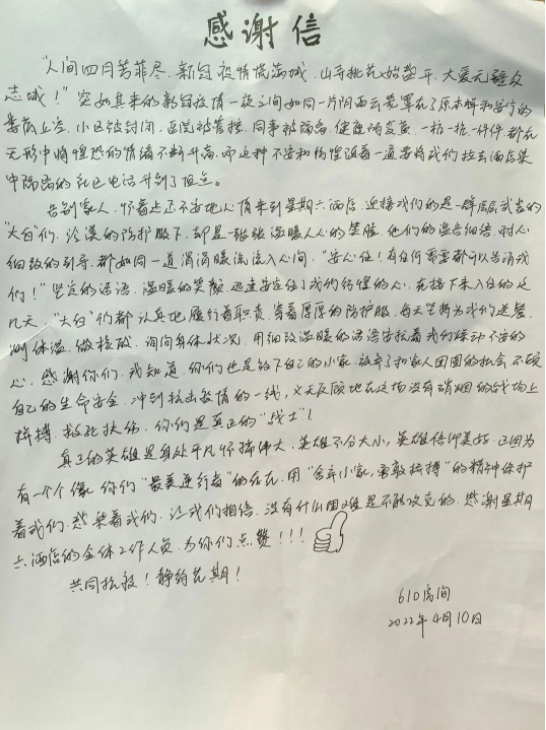 感谢信
"人间四月芳菲尽,新冠疫情慌满城,山寺桃花始盛开,大爱无疆众
志城!"突如其来的新冠疫情一夜之间如同一片阴云笼罩在了原本祥和安宁的
上空,小区被封闭,医院被管控,同事被隔离,健康码变黄,一桩一桩,一件件都在
无形中将惶恐的情绪不断升高,而这种不安和惶恐随着一通要将我们拉去酒店集
中隔离的社区电话升到了顶点。
告别家人,怀着忐忑不安地心情来到星期六酒店,迎接我们的是一群全副武装的
"大白"们,冷漠的防护服下,却是一张张温暖人心的笑脸,他们的温言细语,耐心
细致的引导,都如同一道涓涓暖流流入心间,"安心住!有任何需要都可以告诉我
们!"坚定的话语,温暖的笑颜,迅速安定了我们惶恐的心,在接下来入住的近
几天,"大白"们都认真地履行着职责,穿着厚厚的防护服,每天坚持为我们送餐,
测体温,做核酸,询问身体状况,用细致温暖的话语安抚着我们躁动不安的
心,感谢你们,我知道,你们也是放下自己的小家,放弃了和家人团圆的机会,不顾
自己的生命安全,冲到抗击疫情的一线,义无反顾地在这场没有硝烟的战场上
拼搏,救死扶伤,你们是真正的"战士"!
真正的英雄是身处平凡怀揣伟大,英雄不分大小,英雄信仰美好,正因为
有一个个像你们"最美逆行者"的存在,用"舍弃小家,勇敢拼搏"的精神保护
着我们,感染着我们,让我们相信,没有什么困难是不能攻克的,感谢星期
六酒店的全体工作人员,为你们点赞!!!
共同抗疫!静约花期!
610房间
2022年4月10日